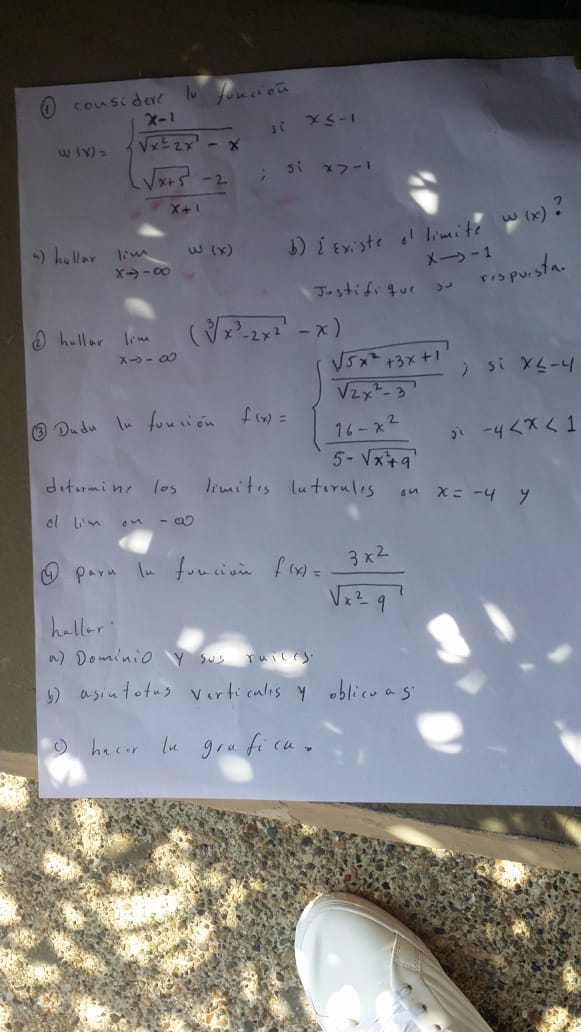 ① considere la función
w(x) = { x-1 / √(x²-2x) - x si x ≤ -1
√(x+5) - 2 / x+1 ; si x > -1
a) hallar lim x→-∞ w(x) b) ¿Existe el limite x→-1 w(x)?
Justifique su respuesta.
② hallar lim x→-∞ (∛(x³-2x²) - x)
③ Dada la función f(x) = { √(5x²+3x+1) / √(2x²-3) ; si x ≤ -4
16-x² / 5-√(x²+9) si -4 < x < 1
determine los limites laterales en x = -4 y
el lim en -∞
④ para la función f(x) = 3x² / √(x²-9)
hallar:
a) Dominio y sus raices.
b) asintotas verticales y oblicuas
c) hacer la grafica.